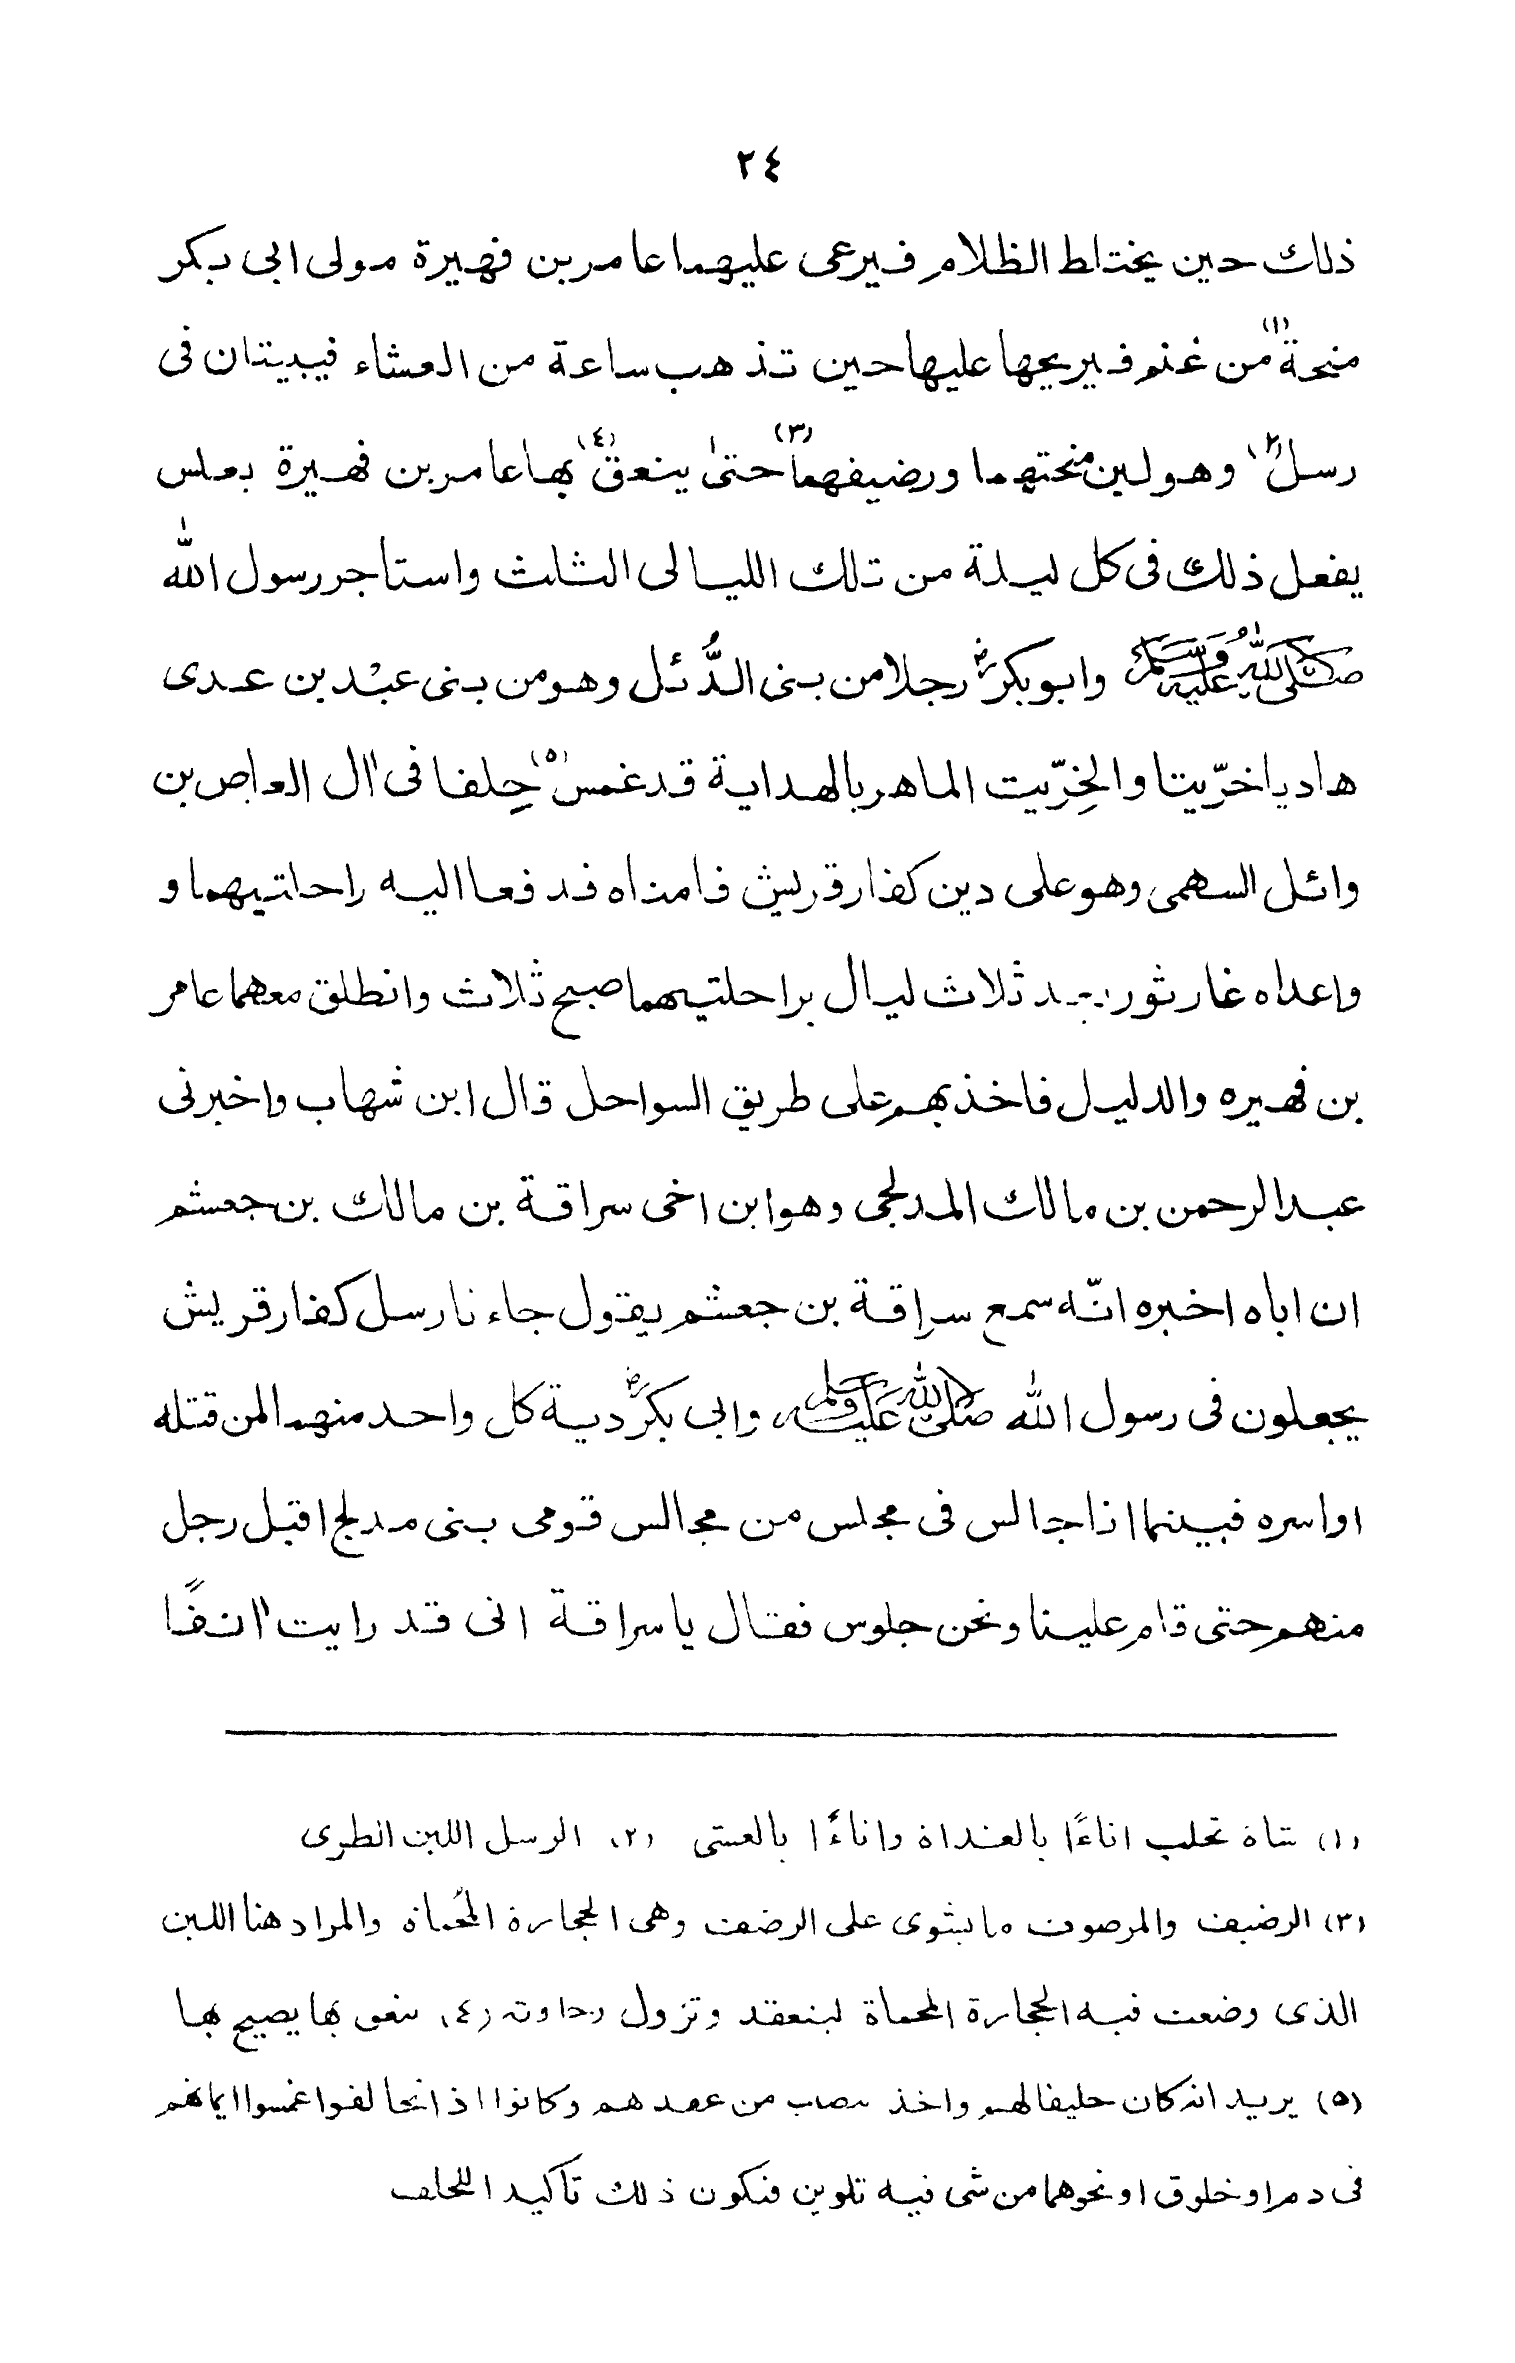 ٢٤
ذلك حين يختلط الظلام فيرعى عليهما عامر بن فهيرة مولى ابى بكر
منحة(١) من غنم فيريحها عليها حين تذهب ساعة من العشاء فيبيتان فى
رسل(٢) وهو لبن منحتهما ورضيفهما(٣) حتىٰ ينعق(٤) بها عامر بن فهيرة بغلس
يفعل ذلك فى كل ليلة من تلك الليالى الثلث واستاجر رسول اللّٰه
صلى الله عليه وسلم وابو بكرؓ رجلا من بنى الدُّئل وهو من بنى عبْد بن عدى
هاديا خرّيتا والخِرّيت الماهر بالهداية قد غمس(٥) حِلفا فى اٰل العاص بن
وائل السهمى وهو على دين كفار قريش فامناه فدفعا اليه راحلتيهما و
واعداه غار ثور بعد ثلاث ليال براحلتيهما صبح ثلاث وانطلق معهما عامر
بن فهيره والدليل فاخذ بهم على طريق السواحل قال ابن شهاب واخبرنى
عبد الرحمن بن مالك المدلجى وهو ابن اخى سراقة بن مالك بن جعشم
ان اباه اخبره انّه سمع سراقة بن جعشم يقول جاءنا رسل كفار قريش
يجعلون فى رسول اللّٰه صلى الله عليه وسلم وابى بكرؓ دية كل واحد منهما لمن قتله
او اسره فبينما انا جالس فى مجلس من مجالس قومى بنى مدلج اقبل رجل
منهم حتى قام علينا ونحن جلوس فقال يا سراقة انى قد رايت اٰنفًا
(١) شاة تحلب اناءًا بالغداة واناءًا بالعشى (٢) الرسل اللبن الطرى
(٣) الرضيف والمرضوف ما يشوى على الرضف وهى الحجارة المُحماة والمراد هنا اللبن
الذى وضعت فيه الحجارة المحماة لينعقد وتزول رخاوته (٤) ينعق بها يصيح بها
(٥) يريد انه كان حليفا لهم واخذ بنصاب من عقدهم وكانوا اذا تحالفوا غمسوا ايمانهم
فى دم او خلوق او نحوهما من شى فيه تلوين فتكون ذلك تاكيدا للحلف